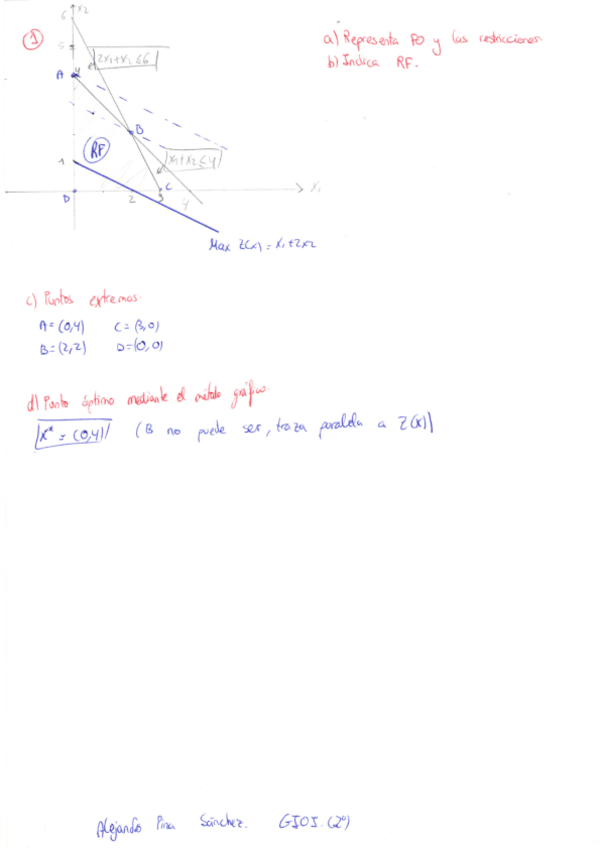 1
a) Representa FO y las restricciones.
b) Indica RF.
x2
6
5
2x1+x2≤6
A
4
B
RF
x1+x2≤4
1
D
2
3
C
4
x1
Max Z(x) = x1+2x2
c) Puntos extremos.
A=(0,4) C=(3,0)
B=(2,2) D=(0,0)
d) Punto óptimo mediante el método gráfico.
x* = (0,4) (B no puede ser, traza paralela a Z(x))
Alejandro Pina Sánchez. GIOI. (2º)